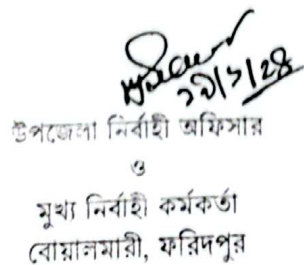 ২৯/১/২৪
উপজেলা নির্বাহী অফিসার
ও
মুখ্য নির্বাহী কর্মকর্তা
বোয়ালমারী, ফরিদপুর